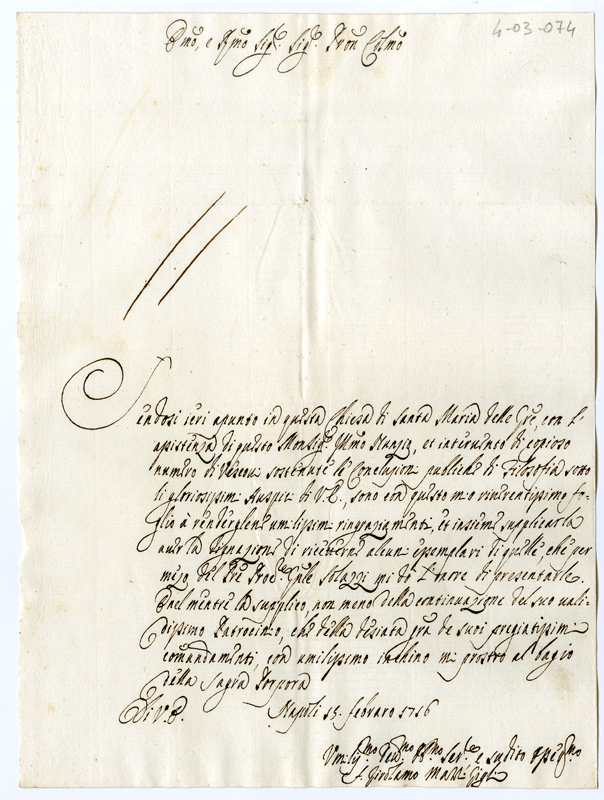 4-03-074
Emo, e Rmo Sigre. Sigre. Pron Colmo
Sendosi ieri apunto in questa Chiesa di Santa Maria delle Gre, con l'
assistenza di questo Monsigr. Illmo Nunzio, et intervento di copioso
numero di Vescovi sostenute le Conclusioni publiche di Filosofia sotto
li gloriosissimi Auspici di V.E., sono con questo mio riverentissimo fo-
glio à renderglene umilissimi ringraziamenti, et insieme supplicarla
aver la degnazione di ricevere alcuni esemplari di quelle, che per
mezo del Pre Procre Gnle Solazzi mi dò l'onore di presentarle.
E nel mentre la supplico, non meno della continuazione del suo vali-
dissimo Patrocinio, che della desiata gra de suoi pregiatissimi
comandamenti, con umilissimo inchino mi prostro al bagio
della Sagra Porpora
Di V.E.
Napoli 15. febraro 1716
Umilmo Devmo Obmo Serre e sudito
f. Girolamo Maria